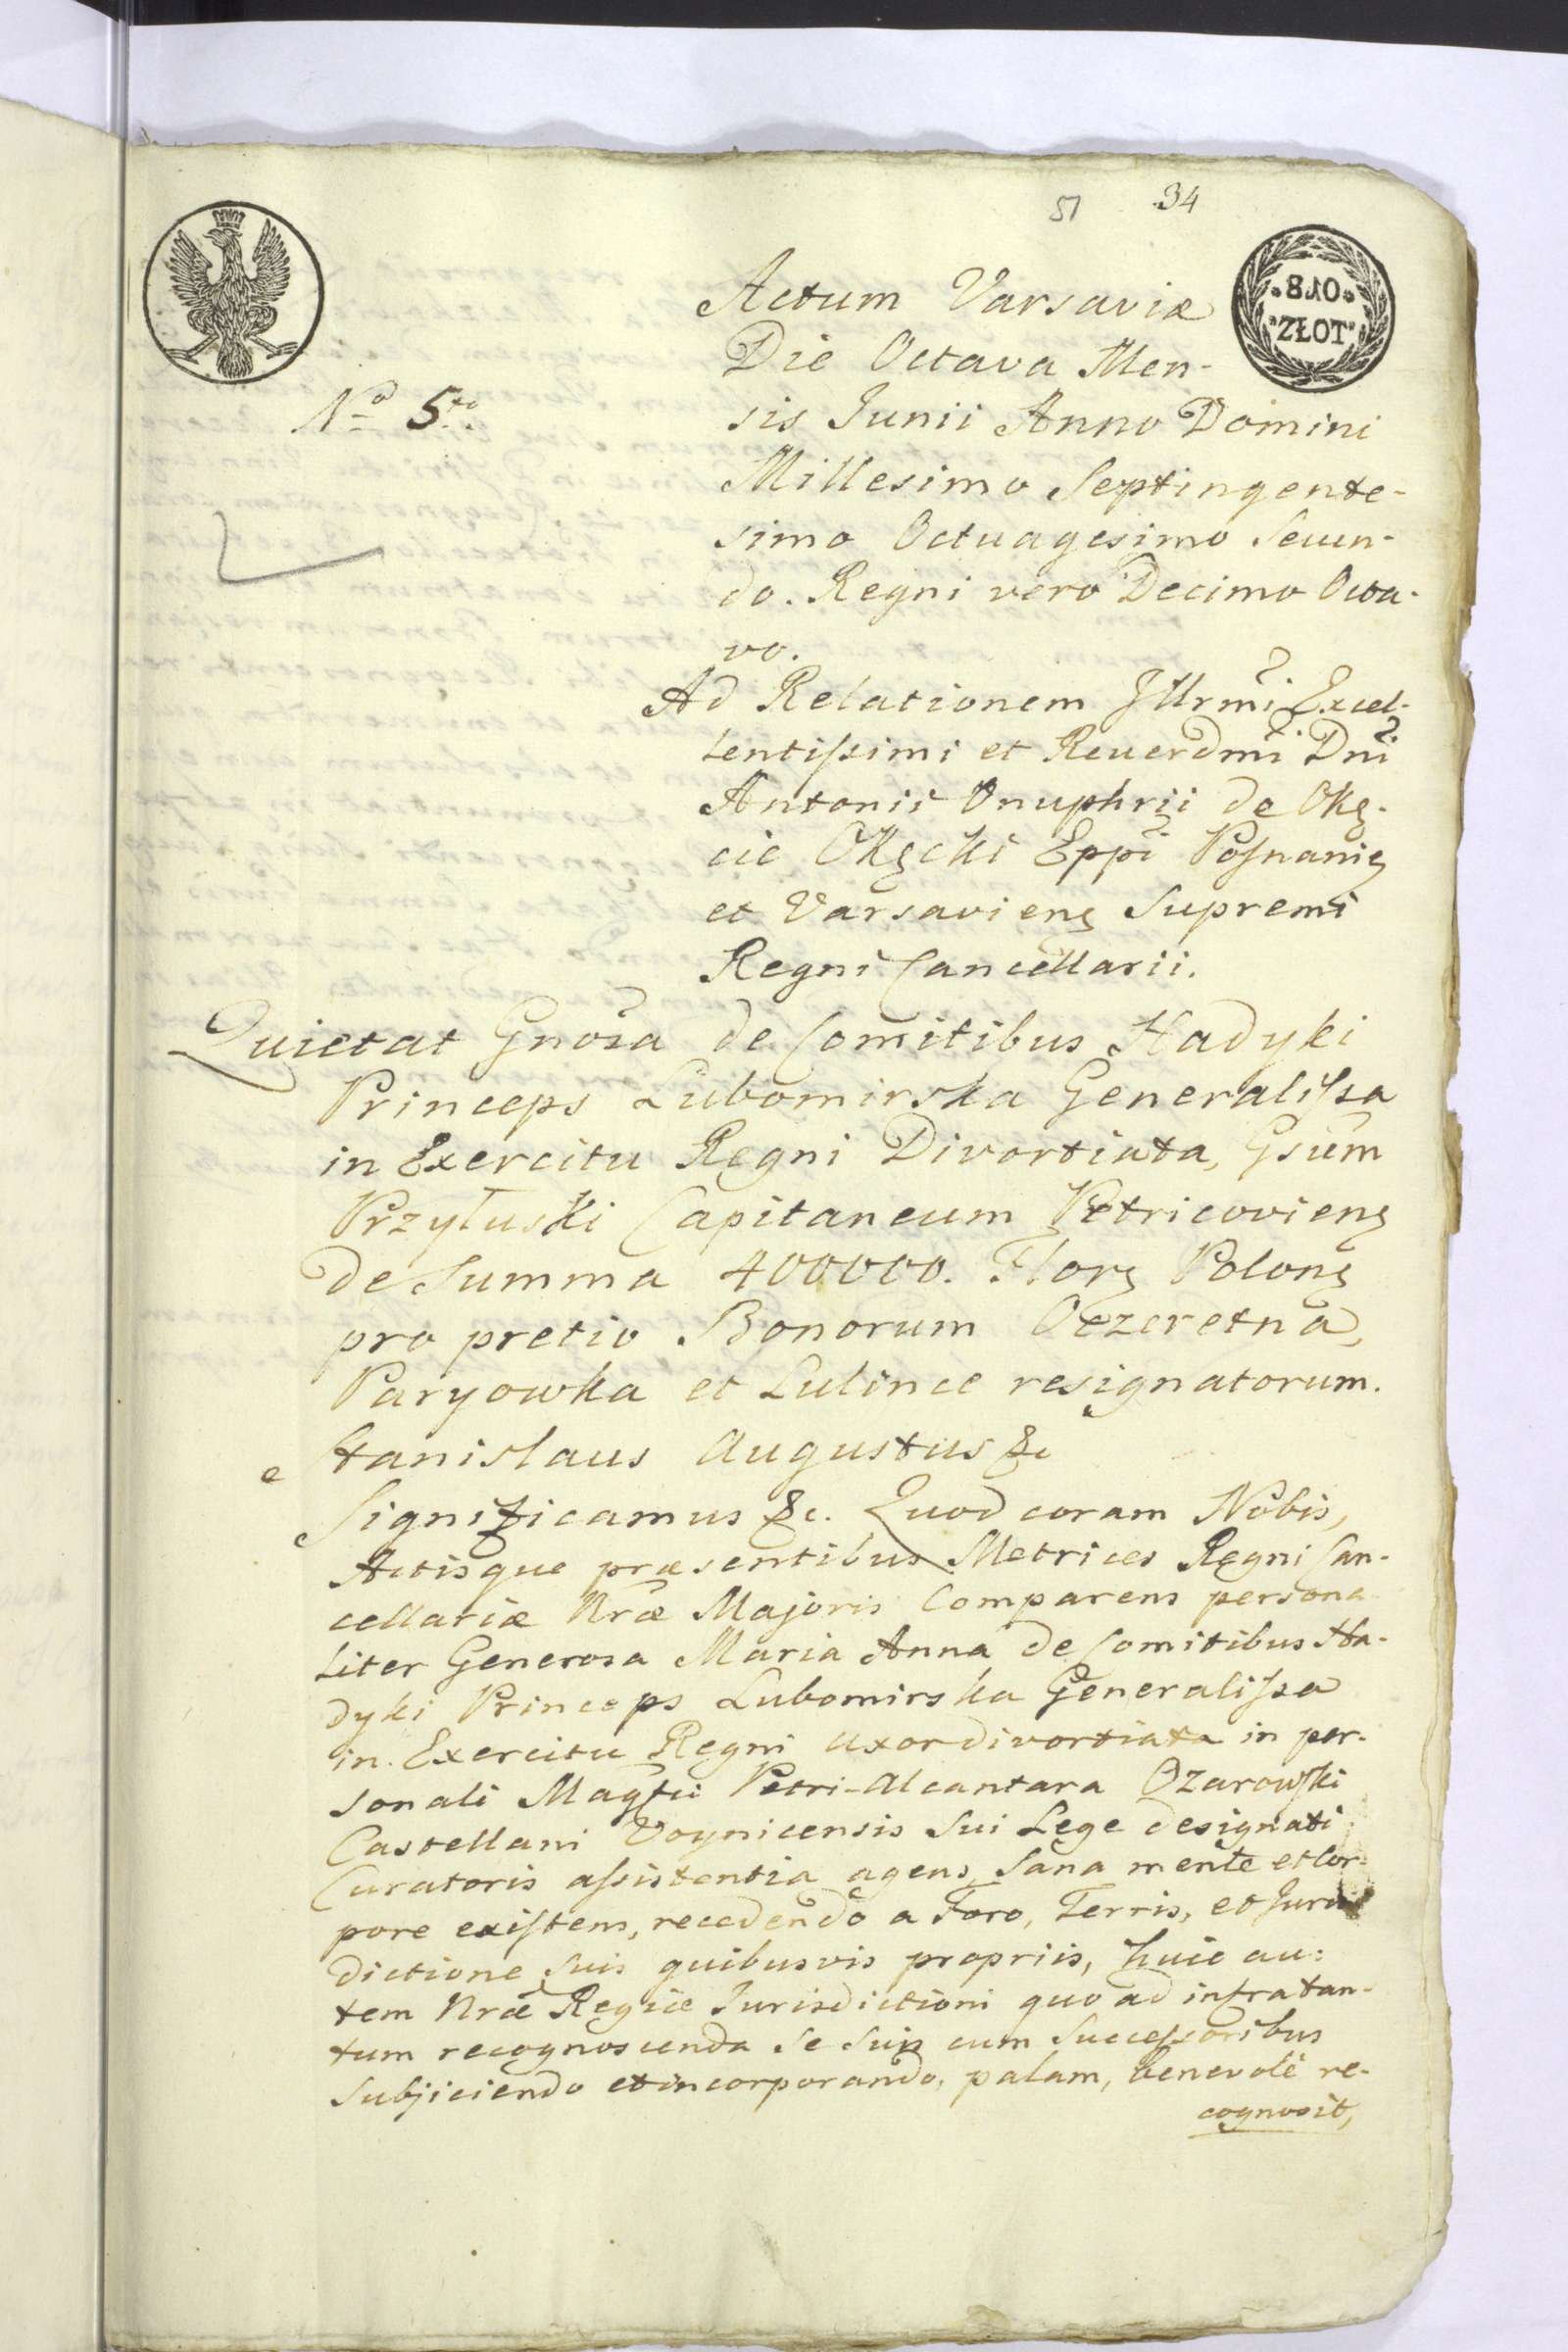 51 34
8 gr 10
ZŁOT
Actum Varsaviæ
Die Octava Men-
No 5to
sis Junii Anno Domini
Millesimo Septingente-
simo Octuagesimo Secun-
do. Regni vero Decimo Octa-
vo.
Ad Relationem Jllrmi Excel-
lentissimi et Reuerdmi Dni
Antonii Onuphrii de Okę-
cie Okęcki Eppi Posnanię
et Varsavienę Supremi
Regni Cancellarii.
Quietat Gnosa de Comitibus Hadyki
Princeps Lubomirska Generalissa
in Exercitu Regni Divortiata, Gsum
Przyłuski Capitaneum Petricovienę
de Summa 400000. Florę Polonę
pro pretio Bonorum Oezeretna,
Paryowka et Lulince resignatorum.
Stanislaus Augustus &c
Significamus &c. Quod coram Nobis,
Actisque præsentibus Metrices Regni Can-
cellariæ Nræ Majoris Comparens persona
liter Generosa Maria Anna de Comitibus Ha-
dyki Princeps Lubomirska Generalissa
in Exercitu Regni uxor divortiata in per-
sonali Magfci Petri-Alcantara Ozarowski
Castellani Voynicensis Sui Lege designati
Curatoris assistentia agens, Sana mente et Cor-
pore existens, recedendo a Foro, Terris, et Juris
dictione suis quibusvis propriis, huic au:
tem Nræ Regiæ Jurisdictioni quo ad infra tan-
tum recognoscenda Se Suis cum Successoribus
Subjiciendo et incorporando, palam, benevolè re-
cognovit,